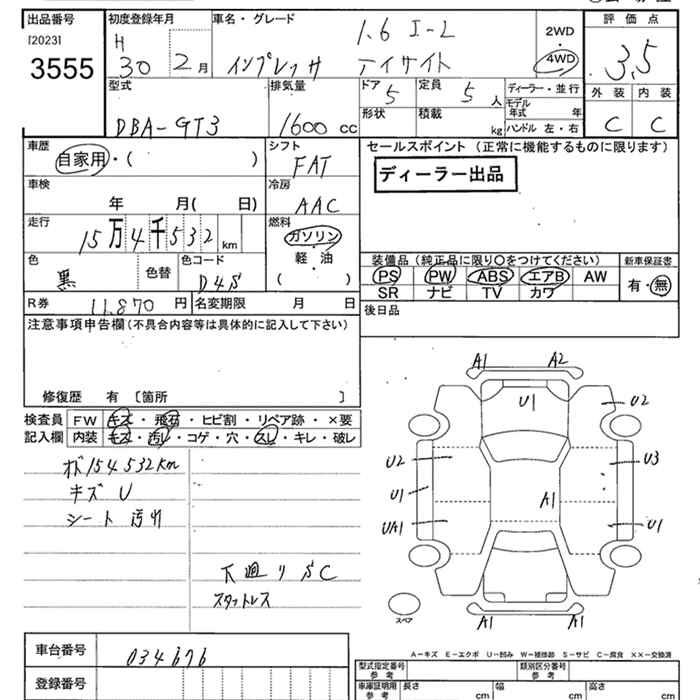 出品番号 初度登録年月 車名・グレード 評価点
[2023] H 1.6 I-L 2WD
3555 30 2月 インプレッサ アイサイト ・ 4WD 3.5
型式 排気量 ドア 5 定員 5人 ディーラー・並行 外装 内装
形状 積載 kg モデル年式 年 C C
DBA-GT3 1600cc ハンドル 左・右
車歴 シフト セールスポイント (正常に機能するものに限ります)
自家用・( ) FAT ディーラー出品
車検 冷房
年 月( 日) AAC
走行 燃料
15万4千532km ガソリン
軽・油
装備品(純正品に限り○をつけてください) 新車保証書
色 色替 色コード ・
黒 D4S ( ) PS PW ABS エアB AW 有・無
SR ナビ TV カワ
R券 11,870円 名変期限 月 日 後日品
注意事項申告欄(不具合内容等は具体的に記入して下さい)
修復歴 有 [箇所 ]
検査員 FW キズ・飛石・ヒビ割・リペア跡・×要
記入欄 内装 キズ・汚レ・コゲ・穴・スレ・キレ・破レ
メ154532km
キズ U
シート 汚レ
下廻り SC
スタットレス
A1 A2
U1 U2
U2 U3
U1 A1
UA1 U1
スペア A1 A1
A-キズ E-エクボ U-凹み W-補修跡 S-サビ C-腐食 ××-交換済
車台番号 034676
登録番号
型式指定番号 参考 類別区分番号 参考
車庫証明用 参考 長さ cm 幅 cm 高さ cm